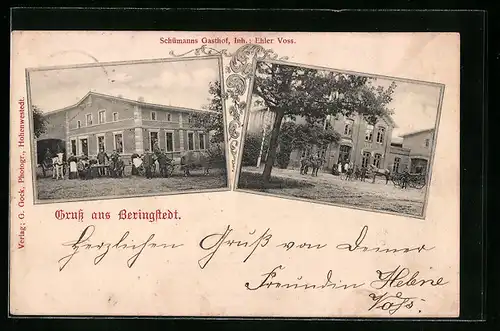 Schümanns Gasthof, Inh.: Ehler Voss.
Verlag: G. Gock, Photogr., Hohenwestedt.
Gruß aus Beringstedt.
Herzlichen Gruß von Deiner
Freundin Helene
Voß.